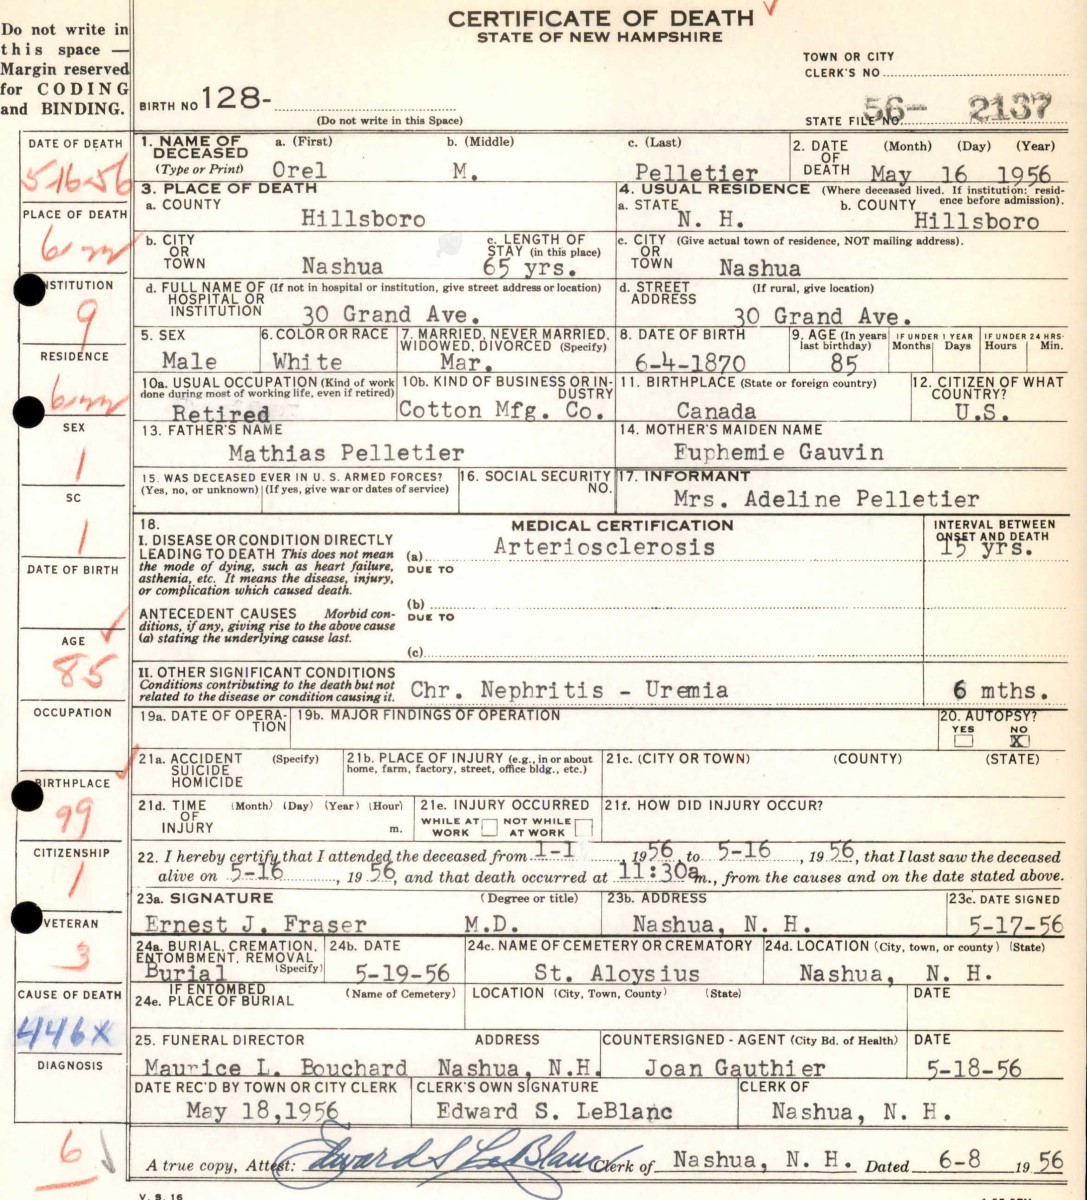 CERTIFICATE OF DEATH
STATE OF NEW HAMPSHIRE
Do not write in
this space —
Margin reserved
for CODING
and BINDING.
TOWN OR CITY
CLERK'S NO
BIRTH NO 128-
(Do not write in this Space)
STATE FILE NO. 56- 2137
DATE OF DEATH
5-16-56
PLACE OF DEATH
INSTITUTION
9
RESIDENCE
SEX
1
SC
1
DATE OF BIRTH
AGE
85
OCCUPATION
BIRTHPLACE
99
CITIZENSHIP
1
VETERAN
3
CAUSE OF DEATH
446X
DIAGNOSIS
6
1. NAME OF DECEASED (Type or Print) a. (First) b. (Middle) c. (Last)
Orel M. Pelletier
2. DATE OF DEATH (Month) (Day) (Year)
May 16 1956
3. PLACE OF DEATH
a. COUNTY
Hillsboro
4. USUAL RESIDENCE (Where deceased lived. If institution: residence before admission).
a. STATE b. COUNTY
N. H. Hillsboro
b. CITY OR TOWN
Nashua
c. LENGTH OF STAY (in this place)
65 yrs.
c. CITY OR TOWN (Give actual town of residence, NOT mailing address).
Nashua
d. FULL NAME OF HOSPITAL OR INSTITUTION (If not in hospital or institution, give street address or location)
30 Grand Ave.
d. STREET ADDRESS (If rural, give location)
30 Grand Ave.
5. SEX
Male
6. COLOR OR RACE
White
7. MARRIED, NEVER MARRIED, WIDOWED, DIVORCED (Specify)
Mar.
8. DATE OF BIRTH
6-4-1870
9. AGE (In years last birthday)
85
IF UNDER 1 YEAR
Months Days
IF UNDER 24 HRS.
Hours Min.
10a. USUAL OCCUPATION (Kind of work done during most of working life, even if retired)
Retired
10b. KIND OF BUSINESS OR INDUSTRY
Cotton Mfg. Co.
11. BIRTHPLACE (State or foreign country)
Canada
12. CITIZEN OF WHAT COUNTRY?
U.S.
13. FATHER'S NAME
Mathias Pelletier
14. MOTHER'S MAIDEN NAME
Euphemie Gauvin
15. WAS DECEASED EVER IN U. S. ARMED FORCES?
(Yes, no, or unknown) (If yes, give war or dates of service)
16. SOCIAL SECURITY NO.
17. INFORMANT
Mrs. Adeline Pelletier
18. MEDICAL CERTIFICATION
INTERVAL BETWEEN ONSET AND DEATH
I. DISEASE OR CONDITION DIRECTLY LEADING TO DEATH This does not mean the mode of dying, such as heart failure, asthenia, etc. It means the disease, injury, or complication which caused death.
(a) Arteriosclerosis 15 yrs.
DUE TO
(b)
DUE TO
ANTECEDENT CAUSES Morbid conditions, if any, giving rise to the above cause (a) stating the underlying cause last.
(c)
II. OTHER SIGNIFICANT CONDITIONS
Conditions contributing to the death but not related to the disease or condition causing it.
Chr. Nephritis - Uremia 6 mths.
19a. DATE OF OPERATION
19b. MAJOR FINDINGS OF OPERATION
20. AUTOPSY?
YES NO
X
21a. ACCIDENT SUICIDE HOMICIDE (Specify)
21b. PLACE OF INJURY (e.g., in or about home, farm, factory, street, office bldg., etc.)
21c. (CITY OR TOWN) (COUNTY) (STATE)
21d. TIME OF INJURY (Month) (Day) (Year) (Hour) m.
21e. INJURY OCCURRED
WHILE AT WORK NOT WHILE AT WORK
21f. HOW DID INJURY OCCUR?
22. I hereby certify that I attended the deceased from 1-1, 1956 to 5-16, 1956, that I last saw the deceased
alive on 5-16, 1956, and that death occurred at 11:30a m., from the causes and on the date stated above.
23a. SIGNATURE (Degree or title)
Ernest J. Fraser M.D.
23b. ADDRESS
Nashua, N. H.
23c. DATE SIGNED
5-17-56
24a. BURIAL, CREMATION, ENTOMBMENT, REMOVAL (Specify)
Burial
24b. DATE
5-19-56
24c. NAME OF CEMETERY OR CREMATORY
St. Aloysius
24d. LOCATION (City, town, or county) (State)
Nashua, N. H.
24e. IF ENTOMBED PLACE OF BURIAL (Name of Cemetery) LOCATION (City, Town, County) (State) DATE
25. FUNERAL DIRECTOR ADDRESS
Maurice L. Bouchard Nashua, N.H.
COUNTERSIGNED - AGENT (City Bd. of Health)
Joan Gauthier
DATE
5-18-56
DATE REC'D BY TOWN OR CITY CLERK
May 18,1956
CLERK'S OWN SIGNATURE
Edward S. LeBlanc
CLERK OF
Nashua, N. H.
A true copy, Attest: Edward S LeBlanc Clerk of Nashua, N. H. Dated 6-8 1956
V. S. 16